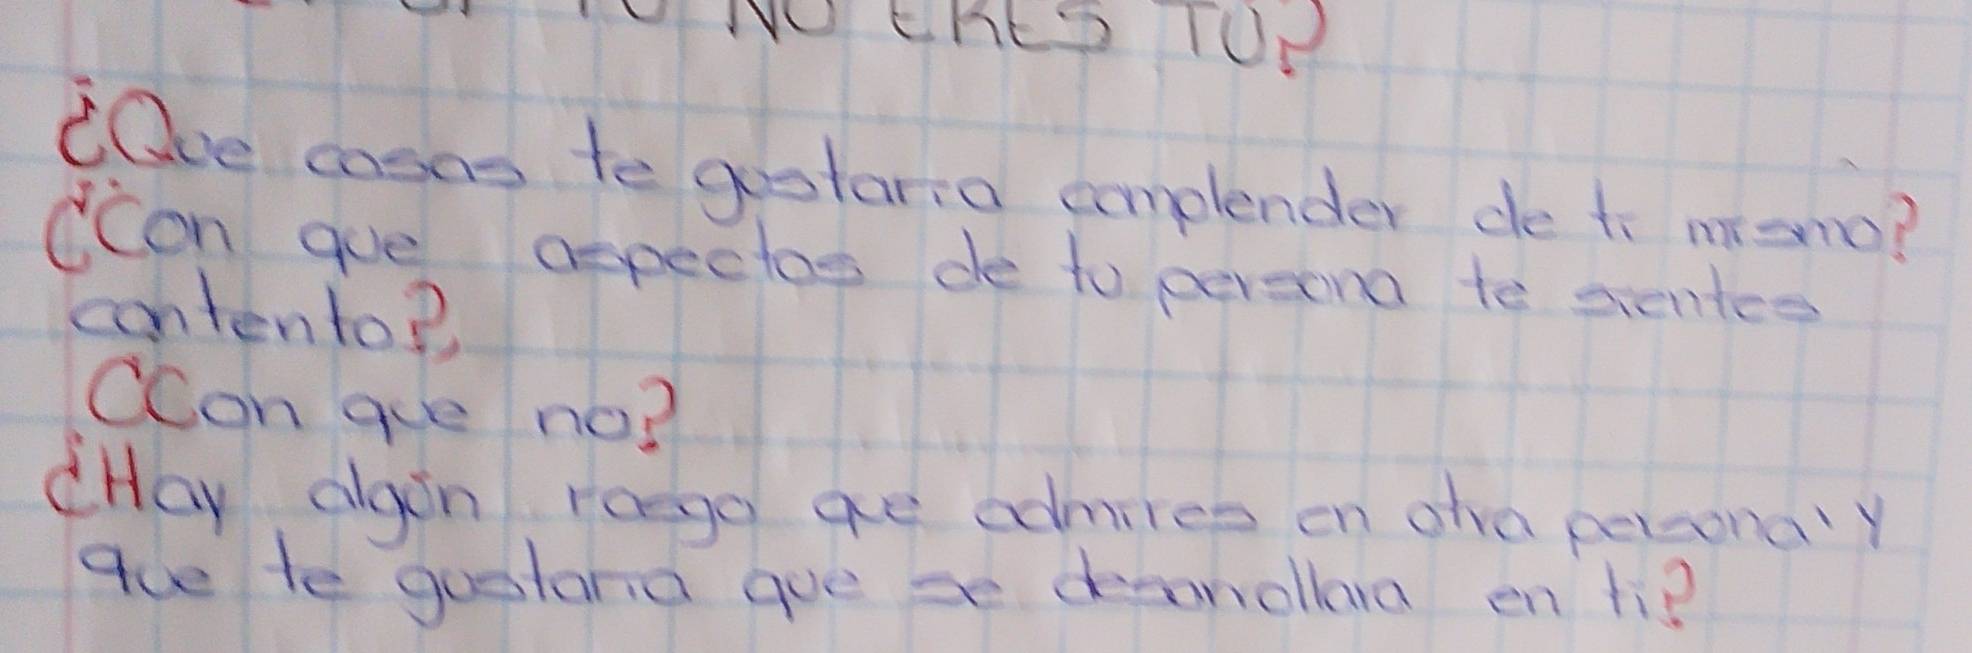 NO ERES TÚ?
¿Que cosas te gustaria complender de ti mismo?
¿Con que aspectos de tu persona te sientes
contento?
¿Con que no?
¿Hay algún rasgo que admires en otra persona y
que te gustaria que se desarrollara en ti?